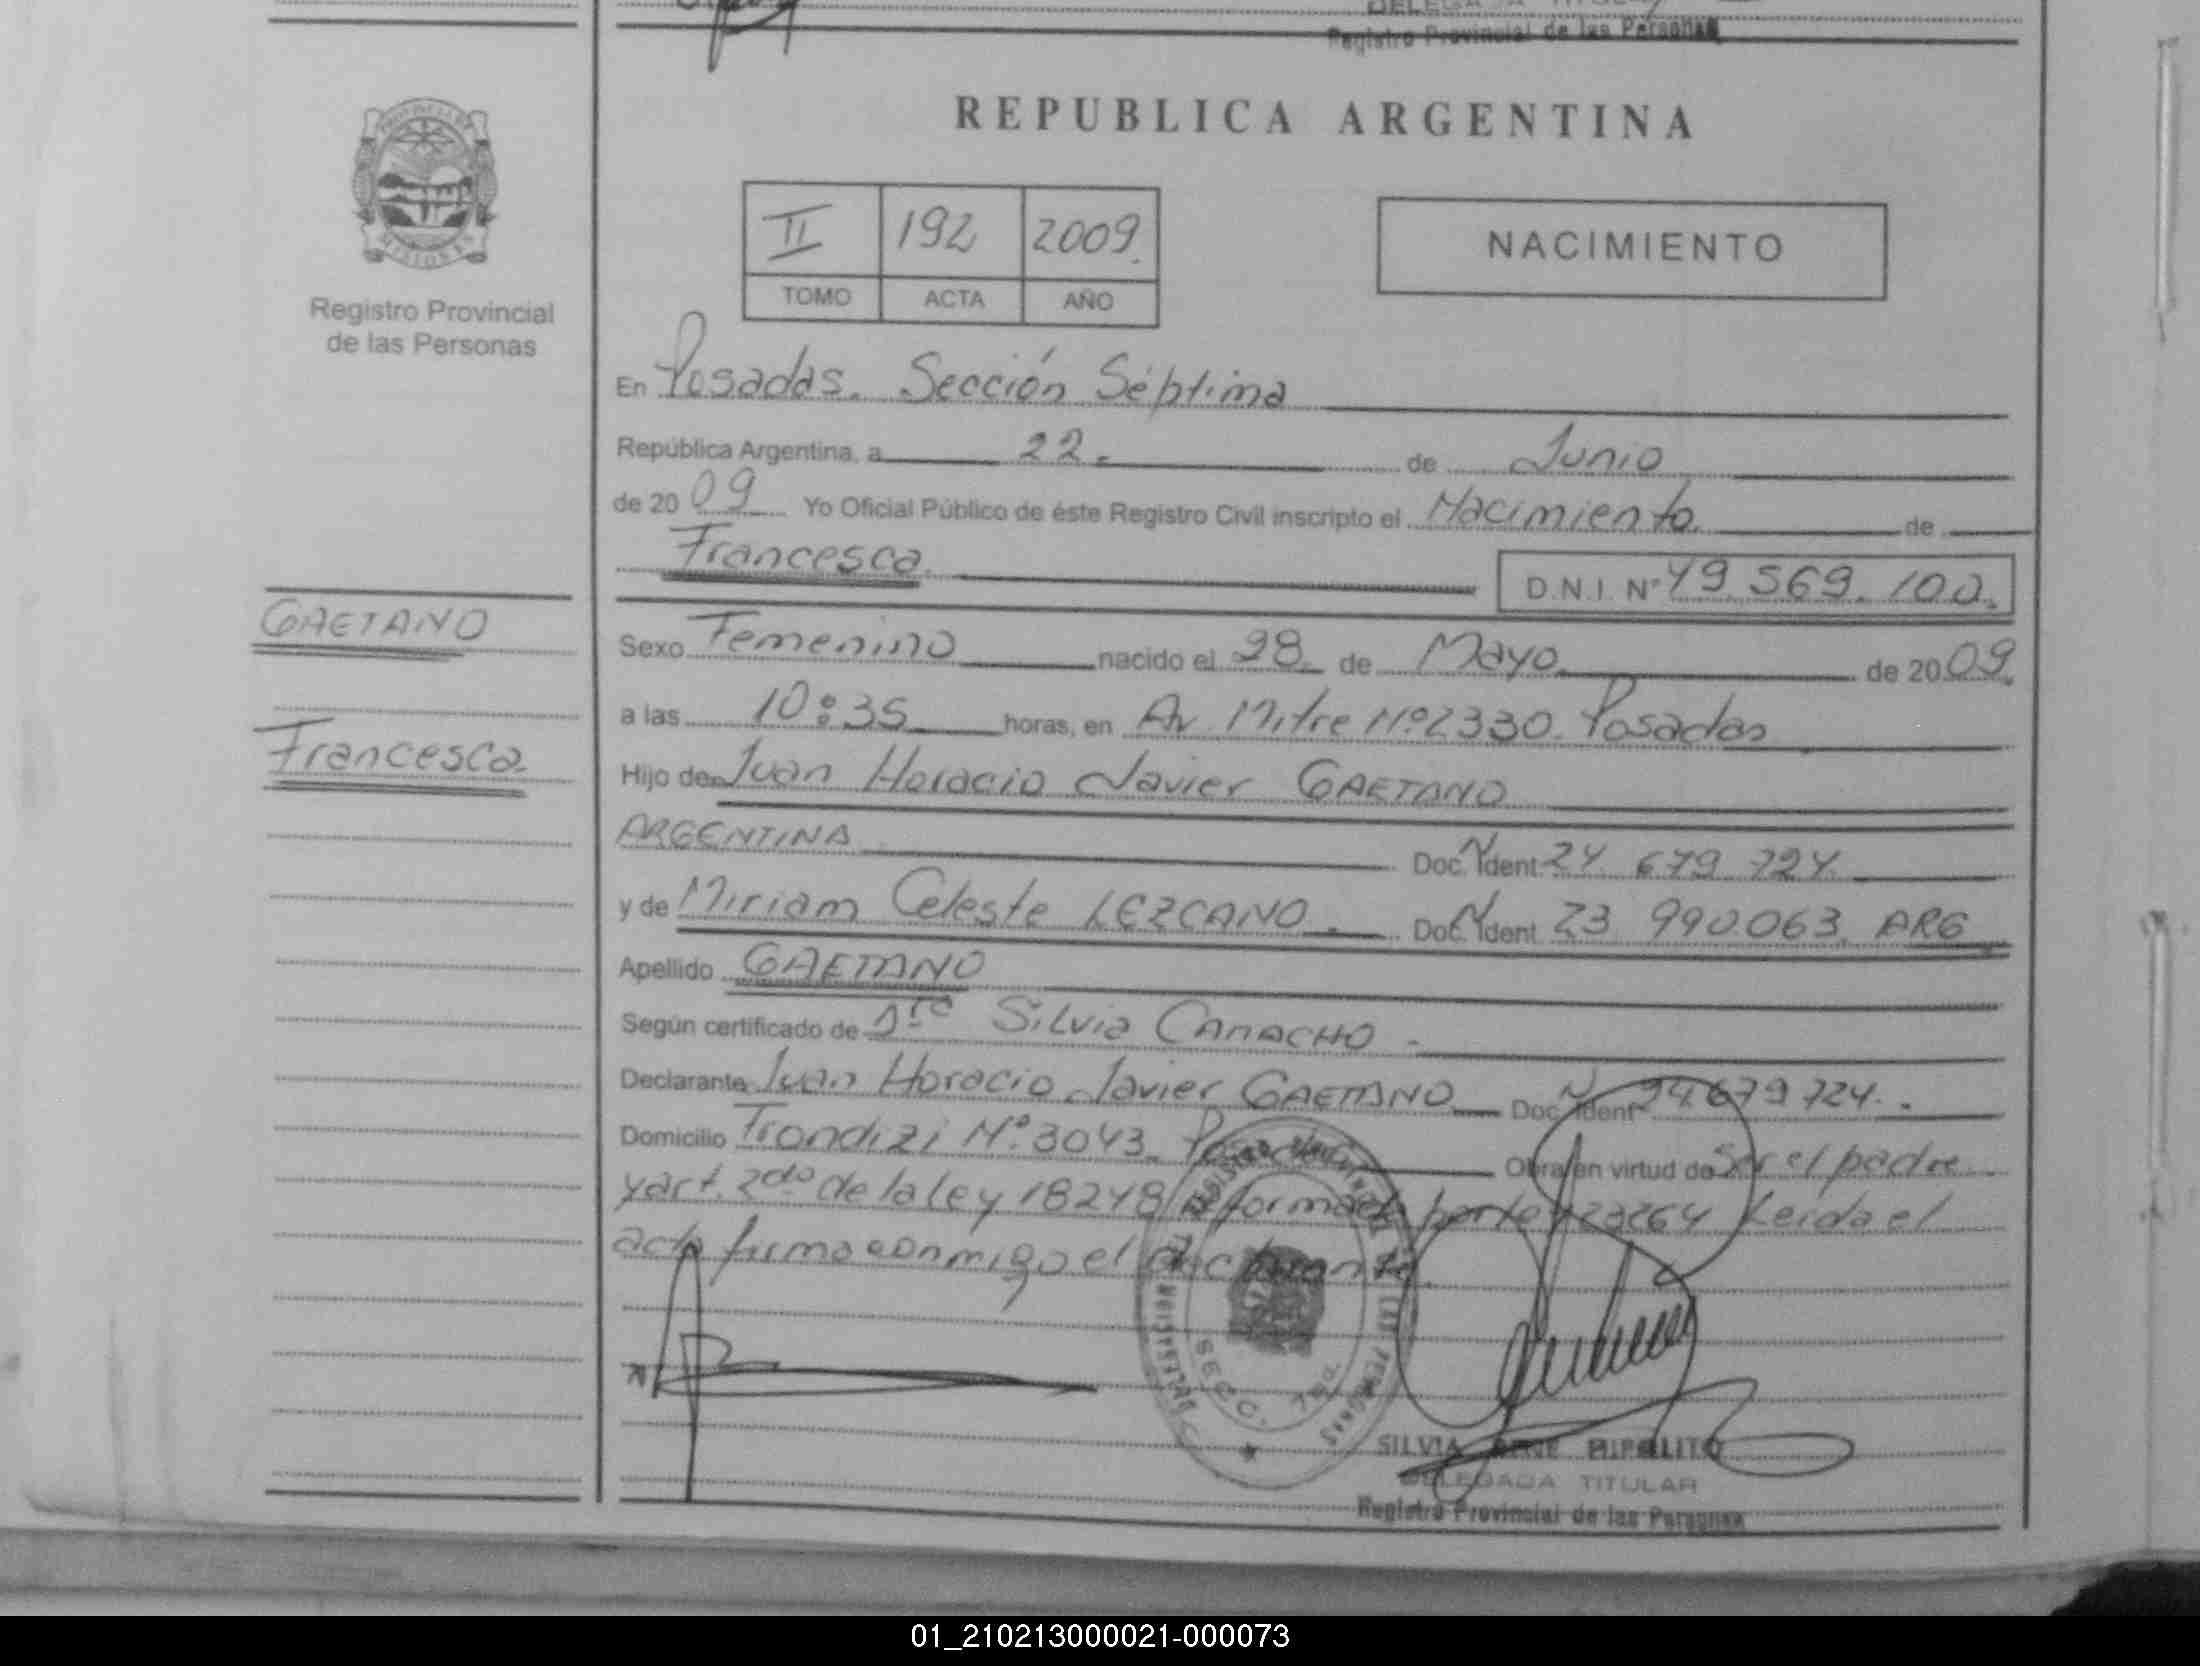 Registro Provincial de las Personas
REPUBLICA ARGENTINA
II 192 2009.
TOMO ACTA AÑO
NACIMIENTO
Registro Provincial
de las Personas
En Posadas. Sección Séptima
República Argentina, a 22. de Junio
de 2009 Yo Oficial Público de éste Registro Civil inscripto el Nacimiento de
Francesca. D.N.I. Nº 49.569.100.
GAETANO
Francesca
Sexo Femenino nacido el 28. de Mayo de 2009.
a las 10:35 horas, en Av. Mitre Nº2330. Posadas
Hijo de Juan Horacio Javier GAETANO
ARGENTINA Doc. Ident. 24 679 724.
y de Miriam Celeste LEZCANO. Doc. Ident 23 990.063. ARG
Apellido GAETANO
Según certificado de Silvia CAMACHO
Declarante Juan Horacio Javier GAETANO Doc. Ident 24.679 724.
Domicilio Frondizi Nº 3043. Posadas Obra en virtud de Ser el padre
y art. 2do de la ley 18248 por 23264 Leida el
acta firma conmigo el declarante.
SECC. 7ma.
SILVIA HIPOLITO
DELEGADA TITULAR
Registro Provincial de las Personas
01_210213000021-000073